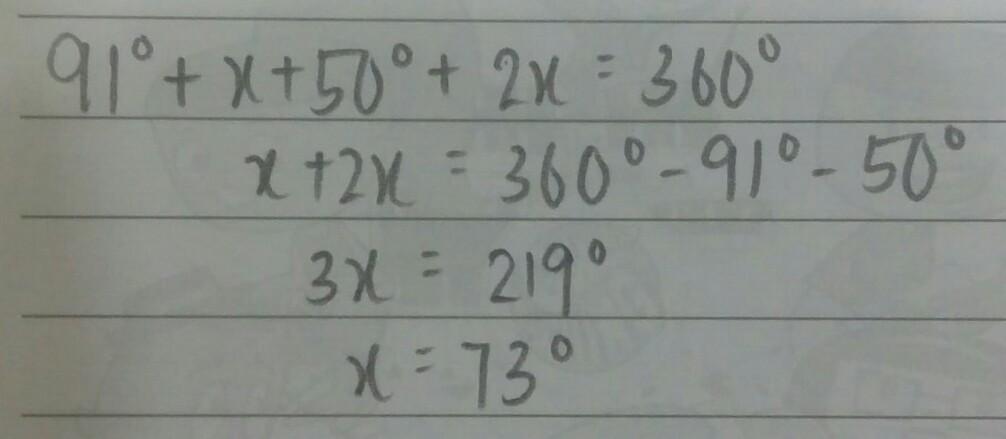 91° + x + 50° + 2x = 360°
x + 2x = 360° - 91° - 50°
3x = 219°
x = 73°